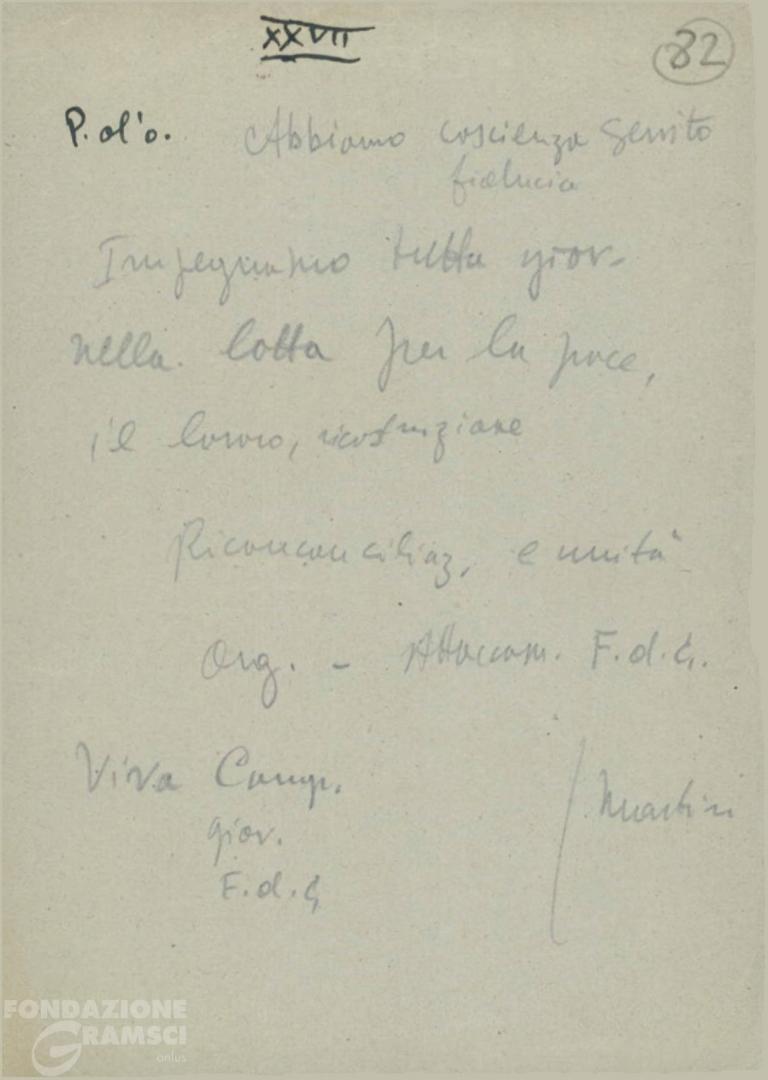 XXVII
82
P. d'o. Abbiamo coscienza servito
fiducia
Impegniamo tutta giov-
nella lotta per la pace,
il lavoro, ricostruzione
Riconconciliaz, e unità
Org. - Attaccam. F.d.G.
Viva Comp.
giov.
F.d.G
Martiri
FONDAZIONE
GRAMSCI
onlus